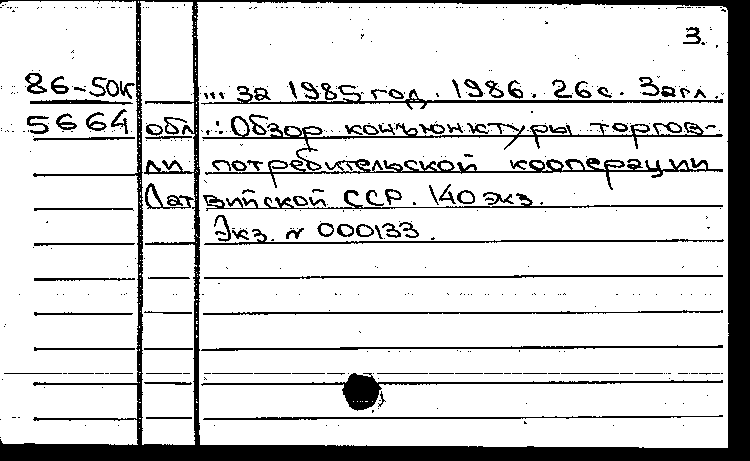 3.
86-50к ... за 1985 год. 1986. 26 с. Загл.
5664 обл.: Обзор конъюнктуры торгов-
ли потребительской кооперации
Латвийской ССР. 140 экз.
Экз. N 000133.